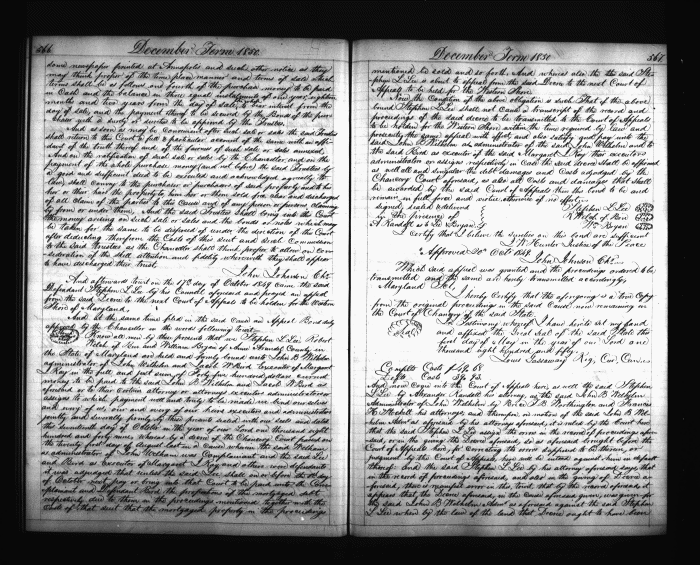 566
December Term 1850.
some newspaper printed at Annapolis and such other notice as they
may think proper of the time place manner and terms of sale which
terms shall be as follows one fourth of the purchase money to be paid
in Cash and the balance in three equal instalments of six years eighteen
months and two years from the day of sale to bear interest from the
day of sale and the payment thereof to be secured by the Bonds of the purchaser
with a surety or sureties to be approved by the Trustee.
And as soon as may be convenient after such sale or sales the said Trustee
shall return to this Court a full & particular account of the same with an affidavit
of the truth thereof and of the fairness of such sale or sales annexed,
And on the ratification of such sale or sales by the Chancellor and on the
payment of the whole purchase money (and not before) the said Trustee by
a good and sufficient deed to be executed and acknowledged agreeably to
Law, shall convey to the purchaser or purchasers of said property and to his
her or their heirs the property to him her or them sold free clear and discharged
of all claim of the parties to this cause and of any person or persons claiming
by from or under them, And the said Trustee shall bring into this Court
the money arising on such sale or sales and the bonds or notes which may
be taken for the same to be disposed of under the direction of this Court
after deducting therefrom the Costs of this suit and such Commission
to the said Trustee as the Chancellor shall think proper to allow on Consideration
of the skill attention and fidelity wherewith they shall appear
to have discharged their trust.
John Johnson Chr.
And afterwards to wit on the 17th day of October 1849 came the said
Defendant Stephen L Lee by his Counsel aforesaid and prayed an appeal
from the said Decree to the next Court of Appeals to be holden for the Western
Shore of Maryland.
And at the same time filed in the said Cause an Appeal Bond duly
approved by the Chancellor in the words following to wit
Know all men by these presents that we Stephen L Lee Robert
Welch of Ben and William Bryan of Anne Arundel County in
the State of Maryland are held and firmly bound unto John B Wilhelm
administrator of John Wilhelm and Jacob W Bird Executor of Margaret
L Ray in the full and just sum of forty nine hundred dollars current
money to be paid to the said John B Wilhelm and Jacob W Bird as
aforesaid or to their certain attorney or attorneys executors administrators or
assigns to which payment well and truly to be made, we bind ourselves
and every of us, our and every of our heirs executors and administrators
jointly and severally firmly by these presents sealed with our seals and dated
this seventeenth day of October in the year of our Lord one thousand eight
hundred and forty nine, whereas by a decree of the Chancery Court passed on
the twenty first day of August last in a Cause wherein the said Wilhelm
as administrator of John Wilhelm was Complainant and the said Lee
and Bird as executor of Margaret L Ray and others were defendants
it was adjudged that unless the said Lee shall on or before the day
of October next pay or bring into that Court to be paid unto the Complainant
and defendant Bird the proportions of the mortgage debt
respectively due to them in the proceedings mentioned together with the
costs of that suit that the mortgaged property in the proceedings
567
December Term 1850
mentioned be sold and so forth. And whereas also the the said Stephen
L Lee is about to appeal from the said Decree to the next Court of
Appeals to be held for the Western Shore.
Now the Condition of the above obligation is such That if the above
bound Stephen L Lee shall not cause a transcript of the record and
proceedings of the said decree to be transmitted to the Court of Appeals
to be holden for the Western Shore within the time required by Law and
prosecute the same appeal with effect and also satisfy and pay unto the
said John B Wilhelm as administrator of the said John Wilhelm and to
the said Bird as executor of the said Margaret L Ray their executors
administrators or assigns respectively in case the said decree shall be affirmed
as well all and singular the debt damages and Costs adjudged by the
Chancery Court aforesaid as also all Costs and damages that shall
be awarded by the said Court of Appeals then this bond to be and
remain in full force and virtue otherwise of no effect
signed, sealed & delivered
in the presence of
A Randall as to Lee Bryan &
Stephen L Lee
R Welch of Ben
Wm Bryan
I certify that I believe the sureties on this bond are sufficient
J W Hunter Justice of the Peace
Approved 20th Oct 1849.
John Johnson Chr.
Which said appeal was granted and the proceedings ordered to be
transmitted and the same are hereby transmitted accordingly.
Maryland Sct.
I hereby certify that the aforegoing is a true Copy
from the original proceedings in the said Cause now remaining in
the Court of Chancery of the said State.
In Testimony whereof I have hereto set my hand
and affixed the Great Seal of the said State this
first day of May in the year of our Lord one
thousand eight hundred and fifty.
Louis Gassaway Reg. Cur. Can.
Complts Costs
Defts Costs
And now Comes into the Court of Appeals here, as well the said Stephen
L Lee by Alexander Randall his attorney, as the said John B Wilhelm
Administrator of John Wilhelm by Brice T B Worthington and Frances
H Stockett his attorneys and thereupon on motion of the said John B Wilhelm
Admr as aforesaid by his attorneys aforesaid, it is ruled by the Court here
that the said Stephen L Lee assign the errors in the record of proceedings aforesaid,
and in the giving the Decree aforesaid, so as aforesaid brought before the
Court of Appeals here, for correcting the errors supposed to be therein, or
judgment by the Court of Appeals here will be entered against him in default
thereof. And the said Stephen L Lee by his attorney aforesaid says, that
in the record of proceedings aforesaid, and also in the giving of Decree aforesaid,
there is manifest error in this, to wit, that by the record aforesaid it
appears that the Decree aforesaid, in the Cause aforesaid given, was given for
the said John B Wilhelm Admr as aforesaid against the said Stephen
L Lee where by the law of the land that Decree ought to have been